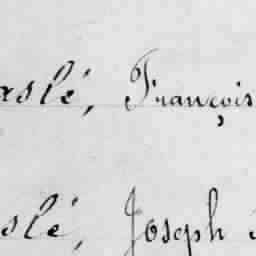 aslé, François
slé, Joseph